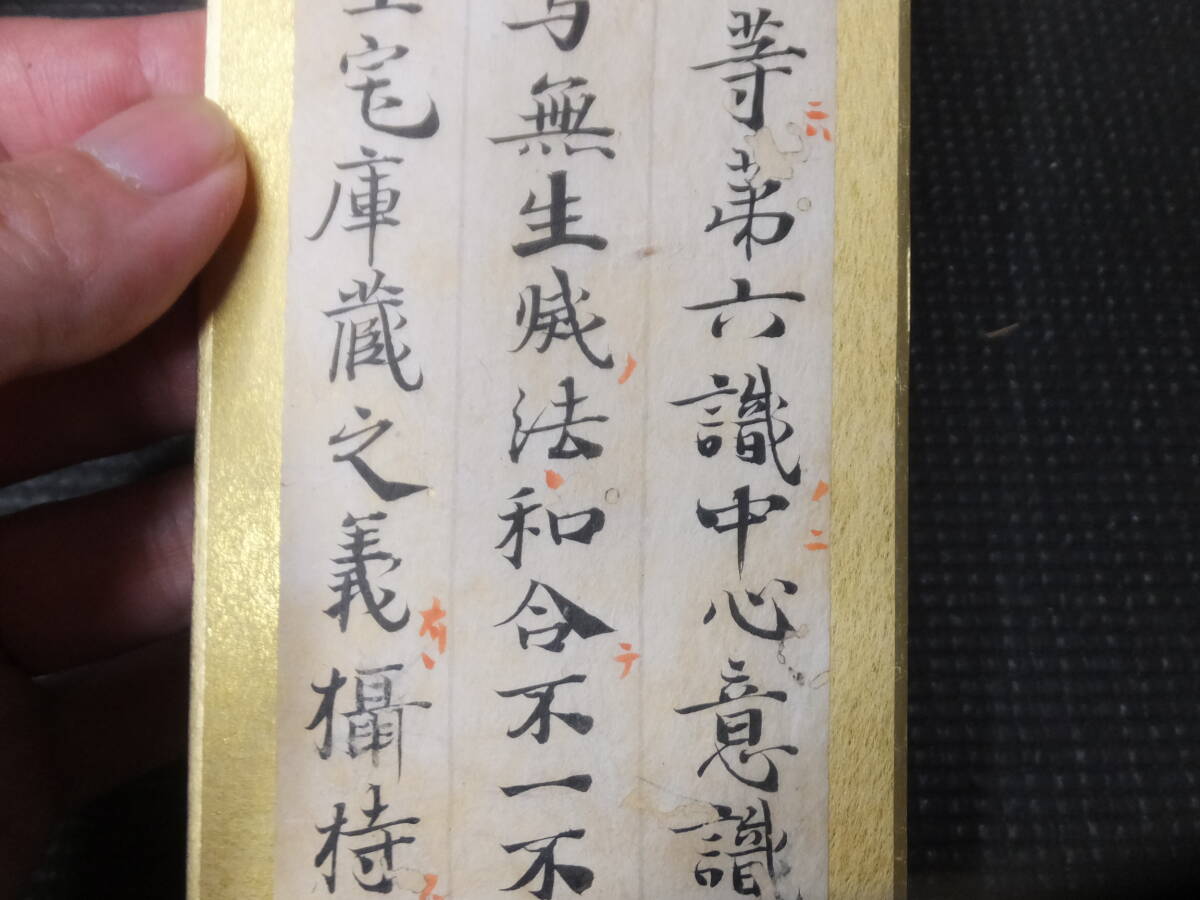 等第六識中心意識
与無生滅法和合不一不
宅庫蔵之義攝持